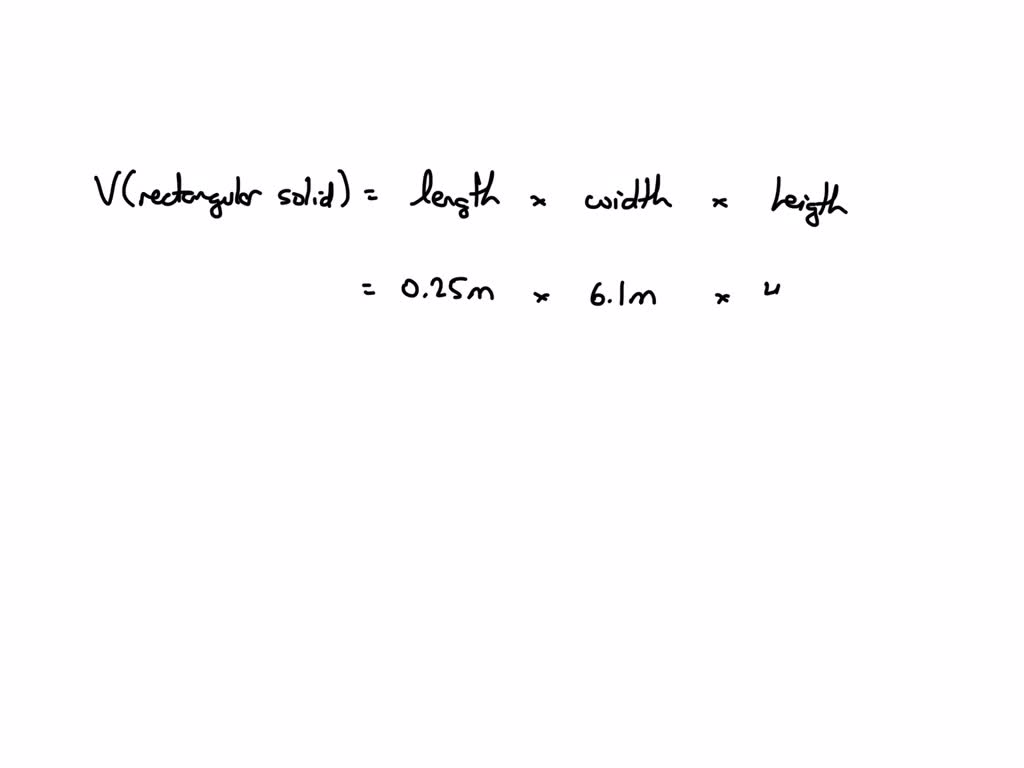 V(rectangular solid) = length × width × heigth
= 0.25m × 6.1m × 4